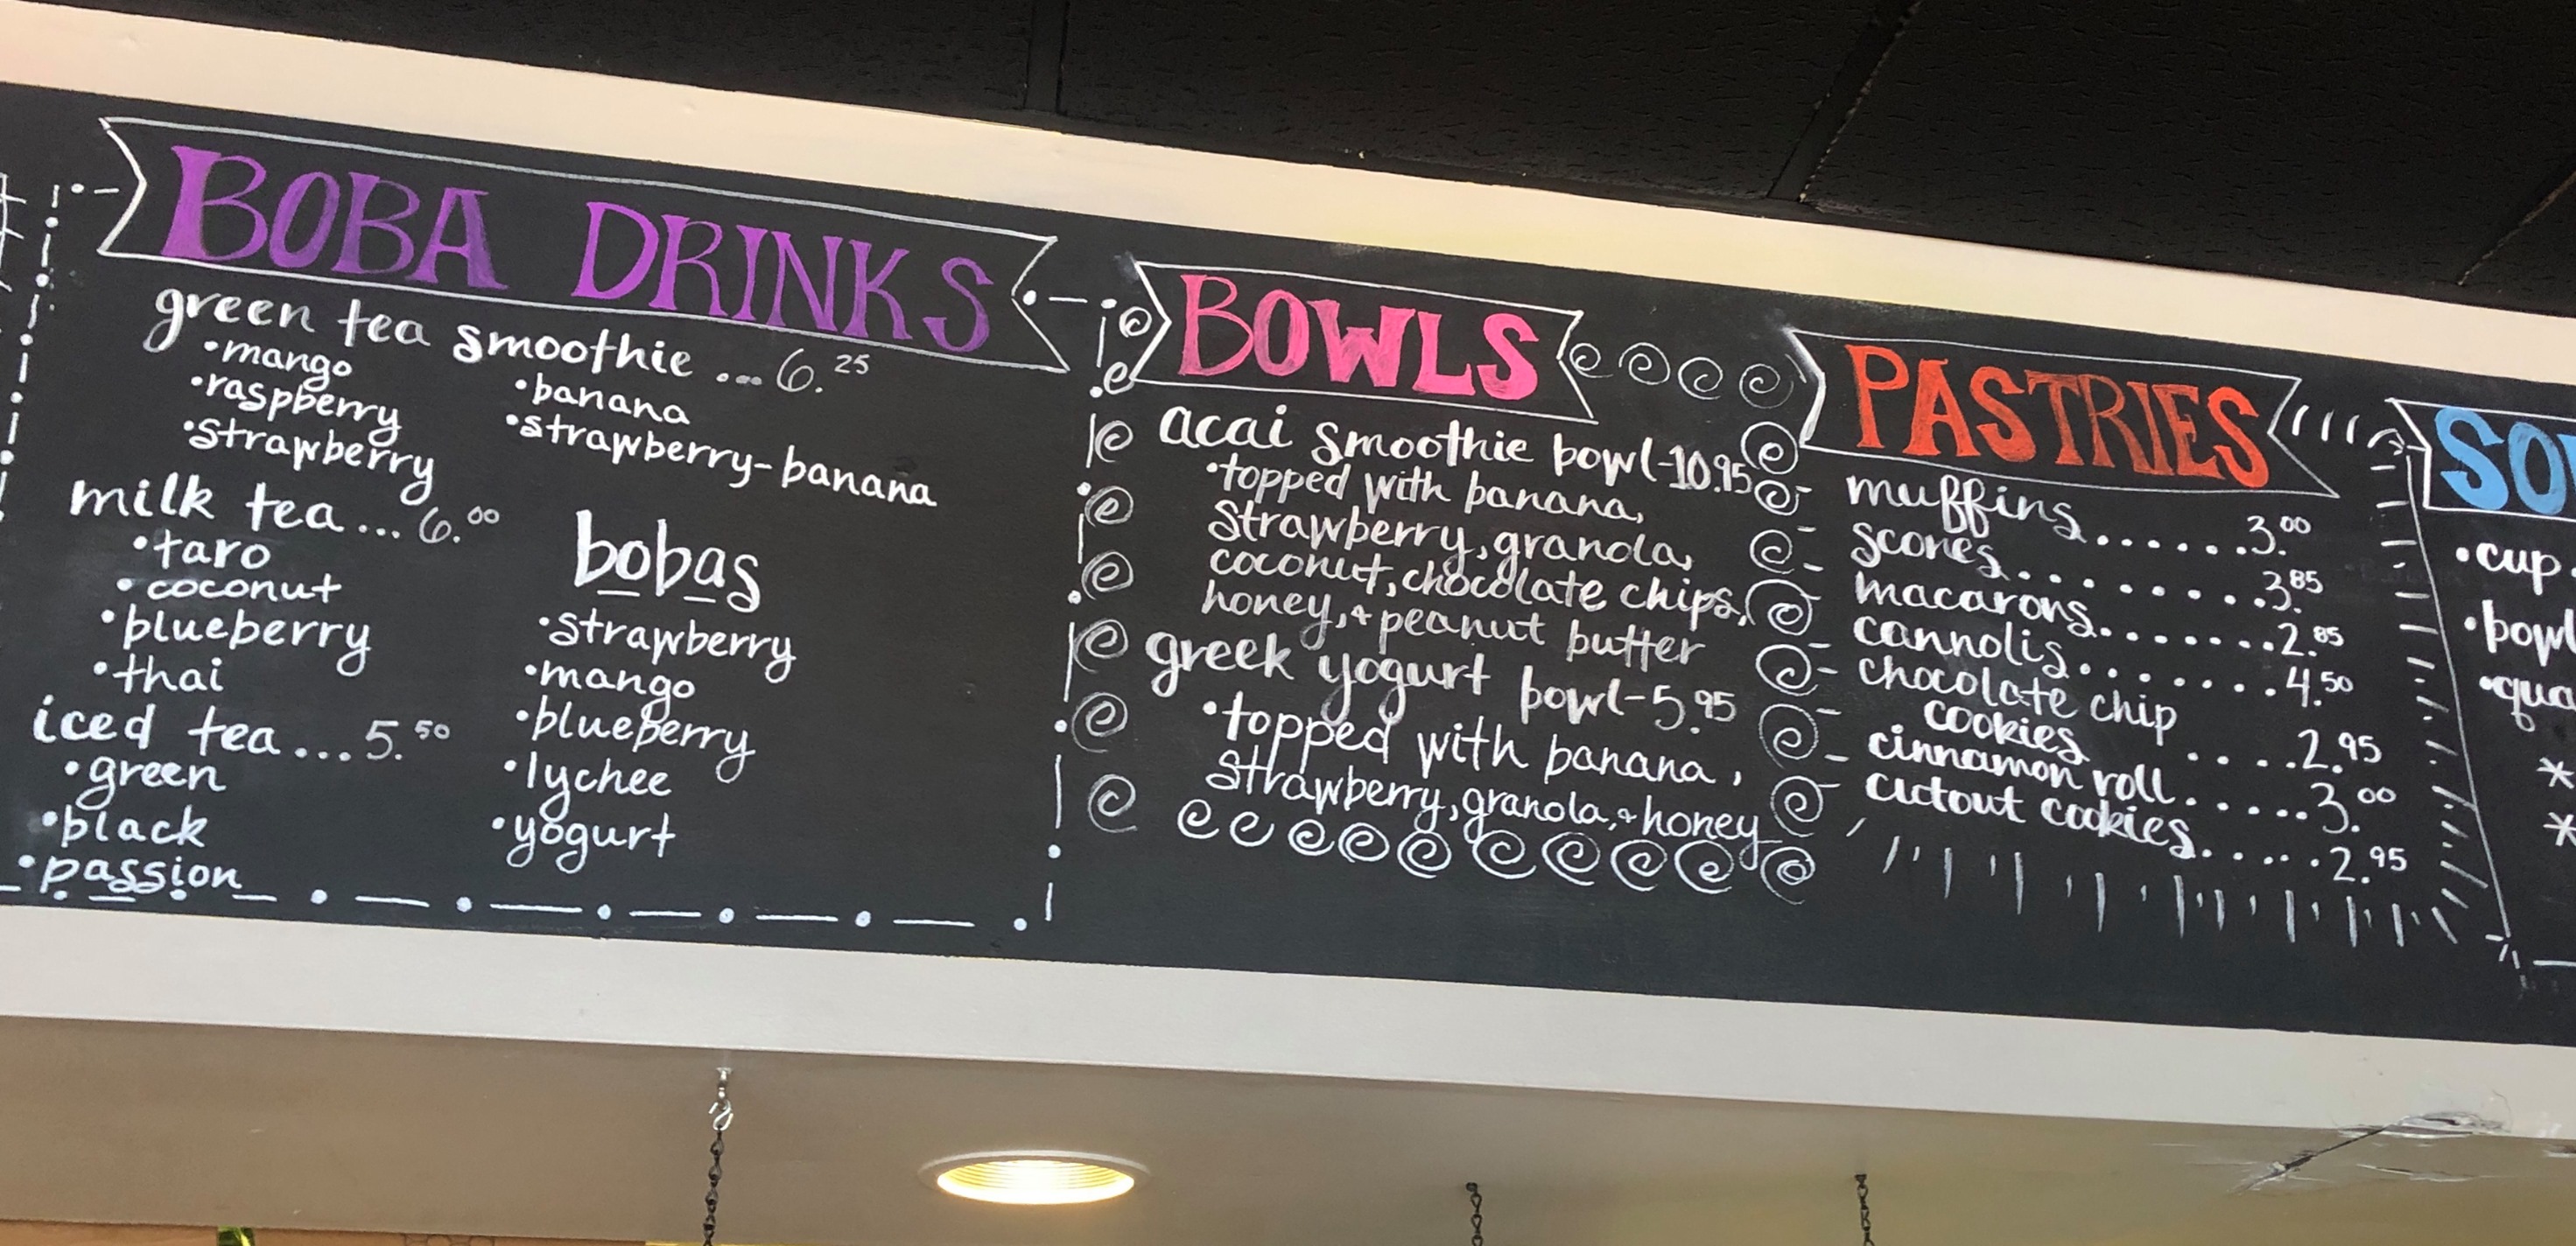 BOBA DRINKS
green tea smoothie ... 6.25
•mango
•raspberry
•strawberry
•banana
•strawberry-banana
milk tea... 6.00
•taro
•coconut
•blueberry
•thai
iced tea... 5.50
•green
•black
•passion
bobas
•strawberry
•mango
•blueberry
•lychee
•yogurt
BOWLS
acai smoothie bowl-10.95
•topped with banana,
strawberry, granola,
coconut, chocolate chips,
honey, + peanut butter
greek yogurt bowl-5.95
•topped with banana,
strawberry, granola, + honey
PASTRIES
muffins......3.00
scones........3.85
macarons.......2.85
cannolis.......4.50
chocolate chip
cookies ....2.95
cinnamon roll.....3.00
cutout cookies.....2.95
•cup
•bowl